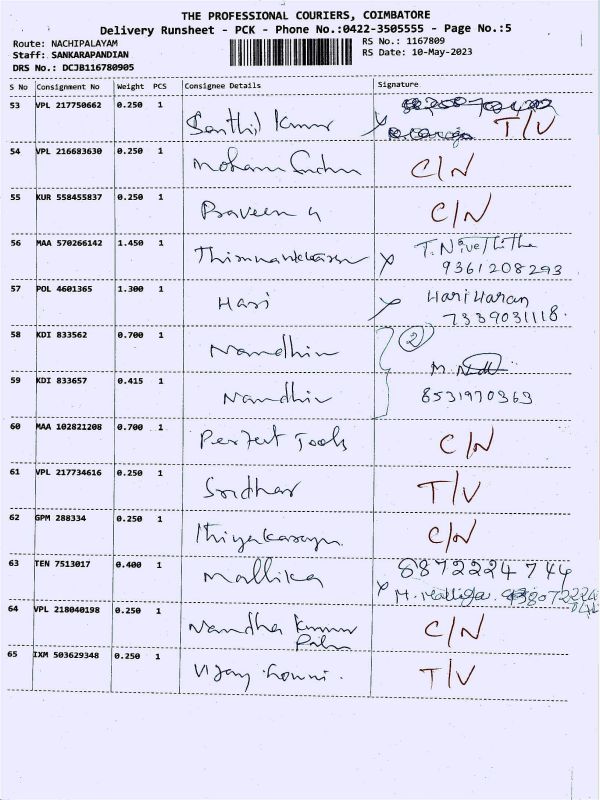 THE PROFESSIONAL COURIERS, COIMBATORE
Delivery Runsheet - PCK - Phone No.:0422-3505555 - Page No.:5
Route: NACHIPALAYAM
RS No.: 1167809
Staff: SANKARAPANDIAN
RS Date: 10-May-2023
DRS No.: DCJB116780905
S No Consignment No Weight PCS Consignee Details Signature
53 VPL 217750662 0.250 1 Senthil Kumar x T/V
54 VPL 216683630 0.250 1 Mohan C/N
55 KUR 558455837 0.250 1 Praveen C/N
56 MAA 570266142 1.450 1 x T. Nivethitha
9361208293
57 POL 4601365 1.300 1 Hari x Hari Haran
7339031118.
58 KDI 833562 0.700 1 Nandhin 2
M.
59 KDI 833657 0.415 1 Nandhin 8531970363
60 MAA 102821208 0.700 1 Perfect Tools C/N
61 VPL 217734616 0.250 1 Sridhar T/V
62 GPM 288334 0.250 1 C/N
63 TEN 7513017 0.400 1 Mallika 8872224744
x M. Malliga
64 VPL 218040198 0.250 1 Nandha Kumar C/N
65 IXM 503629348 0.250 1 Vijay T/V